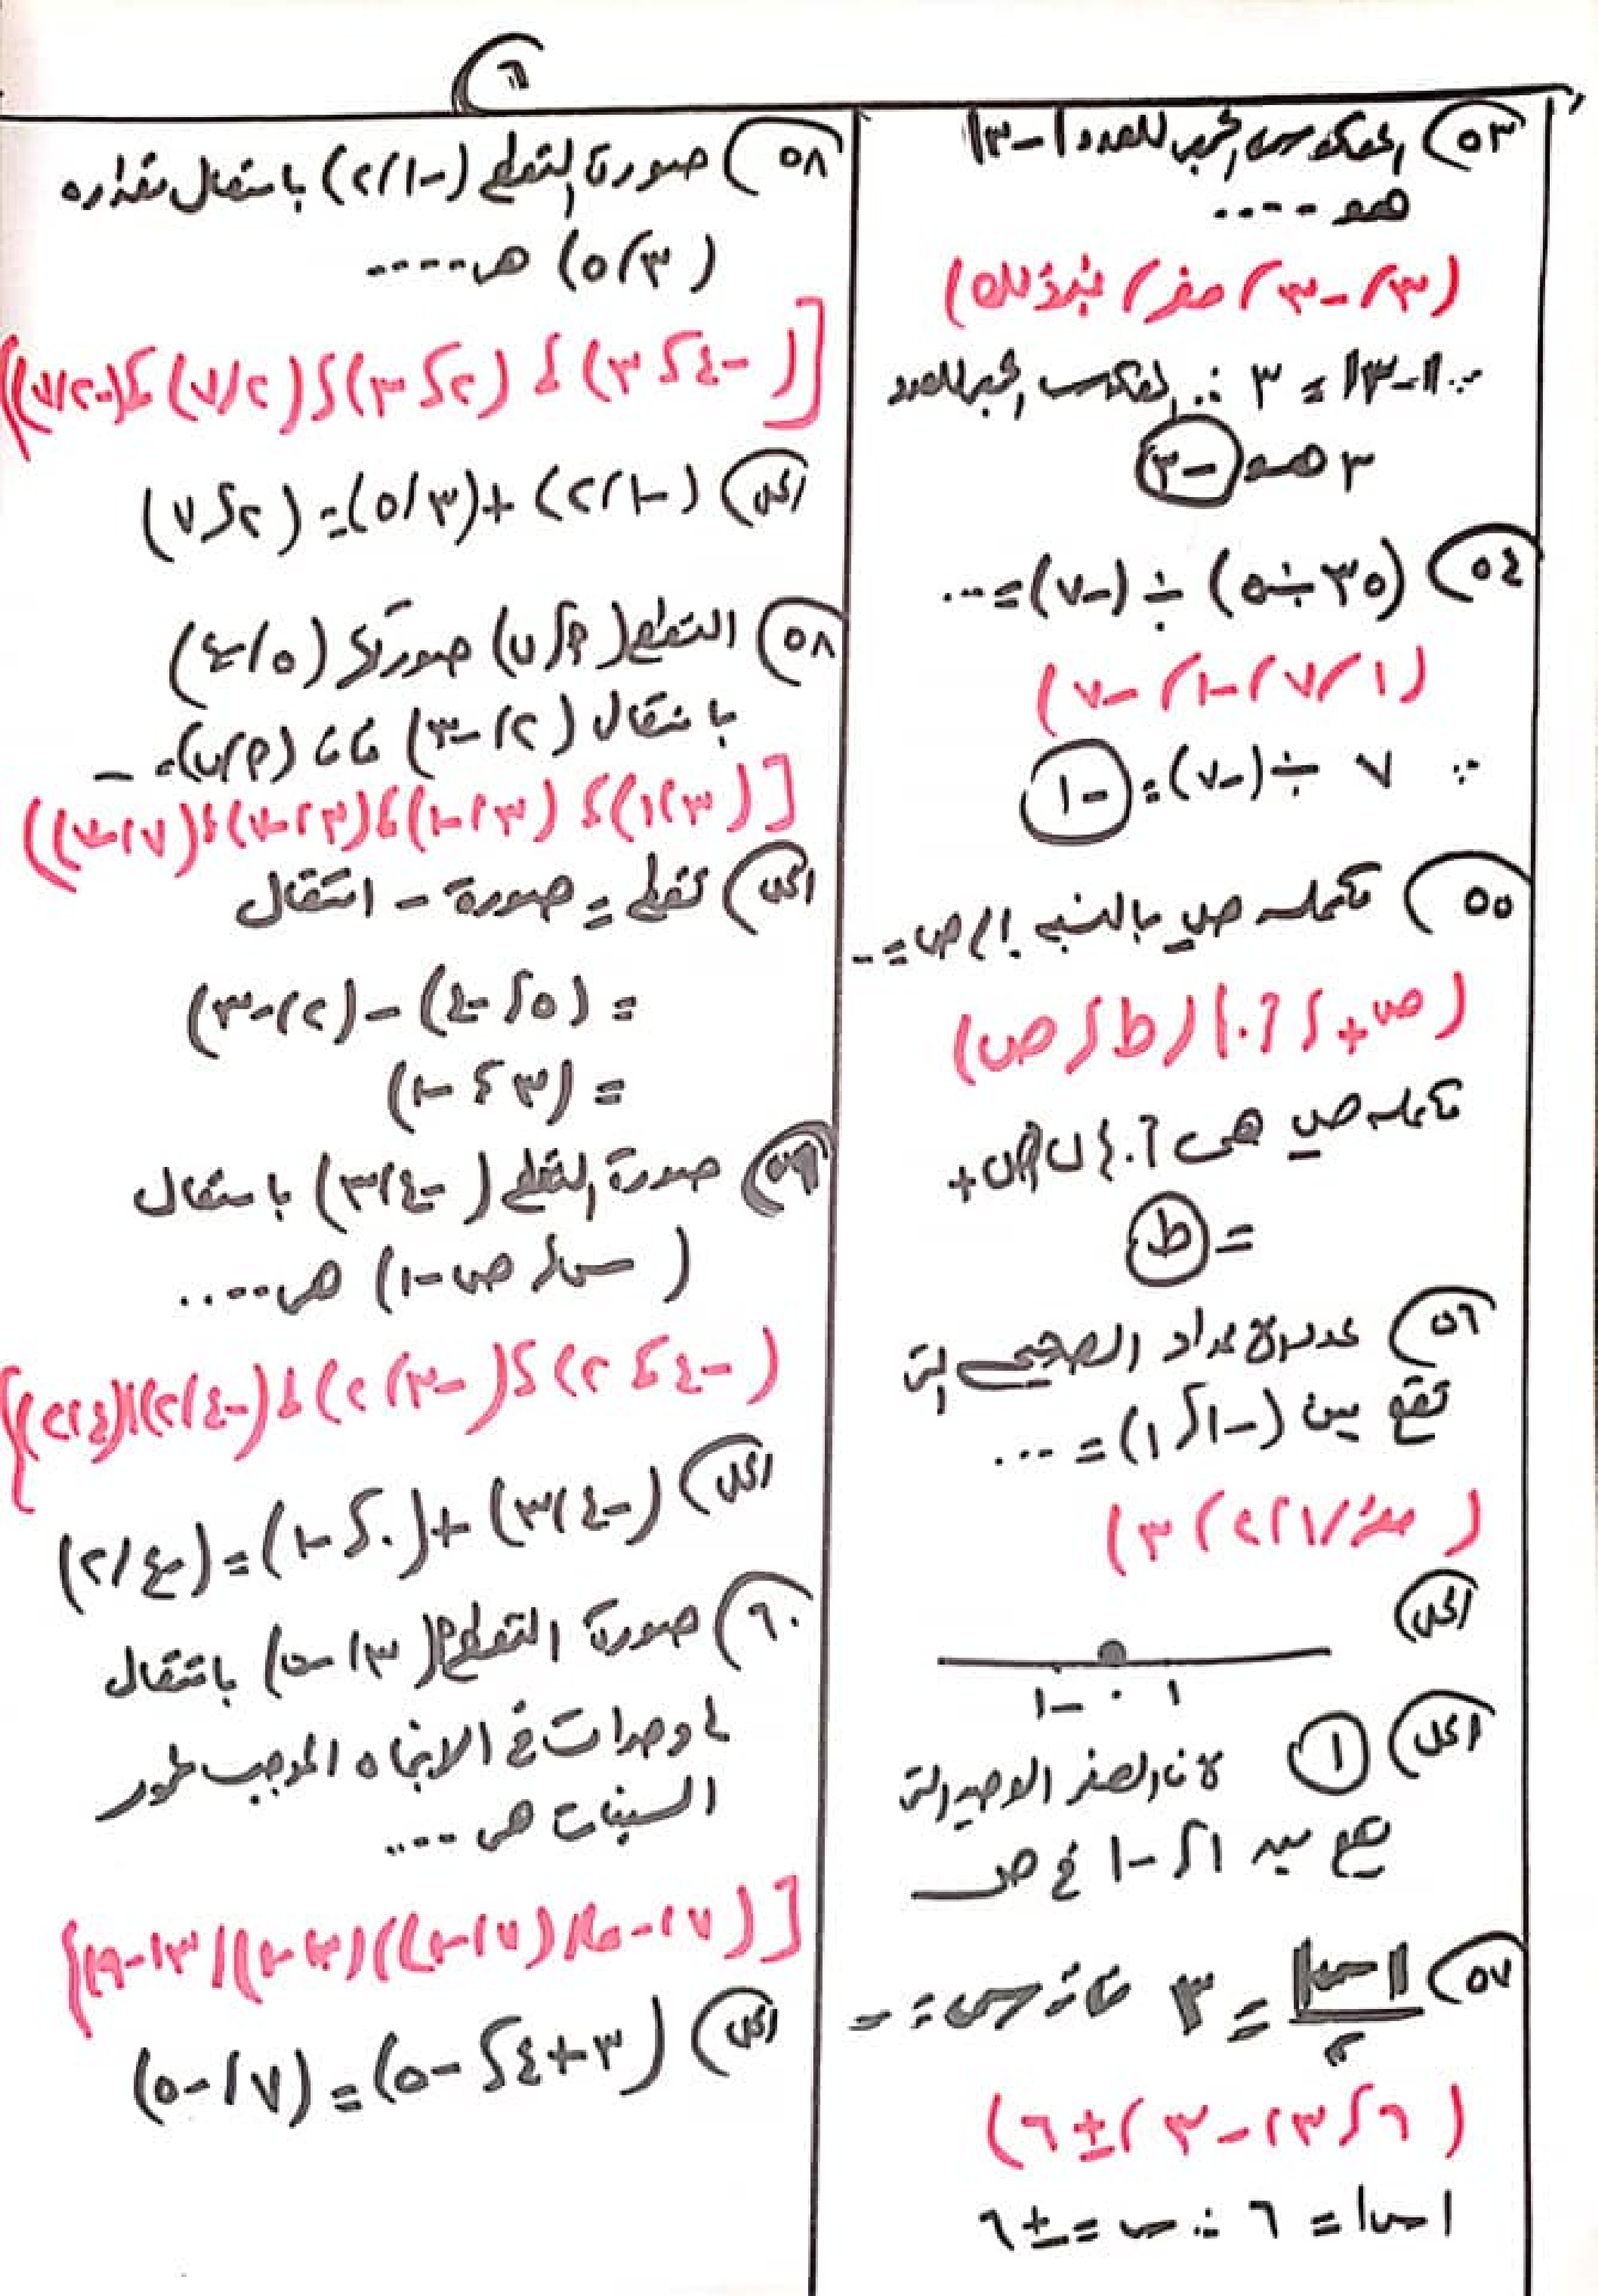 ٦
٥٣) المعكوس الجمعى للعدد |-٣|
هو ....
(٣ ، -٣ ، صفر ، غير ذلك)
∵ |-٣| = ٣ ∴ المعكوس الجمعى للعدد
٣ هو (-٣)
٥٤) (٣٥ ÷ ٥) ÷ (-٧) = ...
(١ ، ٧ ، -١ ، -٧)
∵ ٧ ÷ (-٧) = (-١)
٥٥) تكملة ص- بالنسبة إلى ص = --
(ص+ ، {٠} ، ط ، ص)
تكملة ص- هى {٠} ∪ ص+
= ط
٥٦) عدد الأعداد الصحيحة التى
تقع بين (-١ ، ١) = ...
(صفر ، ١ ، ٢ ، ٣)
الحل
-١ ٠ ١
الحل) ١ لأن الصفر الوحيد التى
يقع بين ١ ، -١ فى ص
٥٧) |س| / ٢ = ٣ فإن س = --
(٦ ، ٣ ، -٣ ، ±٦)
|س| = ٦ ∴ س = ±٦
٥٨) صورة النقطة (-١ ، ٢) بانتقال مقداره
(٣ ، ٥) هى ....
[(-٤ ، ٣) ، (٢ ، ٣) ، (٢ ، ٧) ، (-٢ ، ٧)]
الحل) (-١ ، ٢) + (٣ ، ٥) = (٢ ، ٧)
٥٨) النقطة (م ، ن) صورتها (٥ ، -٤)
بانتقال (٢ ، -٣) فإن (م ، ن) = --
[(٣ ، ١) ، (٣ ، -١) ، (٣ ، -٧) ، (٧ ، -٧)]
الحل) نقطة = صورة - انتقال
= (٥ ، -٤) - (٢ ، -٣)
= (٣ ، -١)
٥٩) صورة النقطة (-٤ ، ٣) بانتقال
(س ، ص - ١) هى ....
((-٤ ، ٢) ، (-٣ ، ٢) ، (-٤ ، ٢) ، (٤ ، ٢))
الحل) (-٤ ، ٣) + (٠ ، -١) = (-٤ ، ٢)
٦٠) صورة النقطة (٣ ، -٥) بانتقال
٤ وحدات فى الاتجاه الموجب لمحور
السينات هى ....
[(٧ ، -٥) ، (٧ ، -١) ، (٣ ، -١) ، (٣ ، -٩)]
الحل) (٣ + ٤ ، -٥) = (٧ ، -٥)